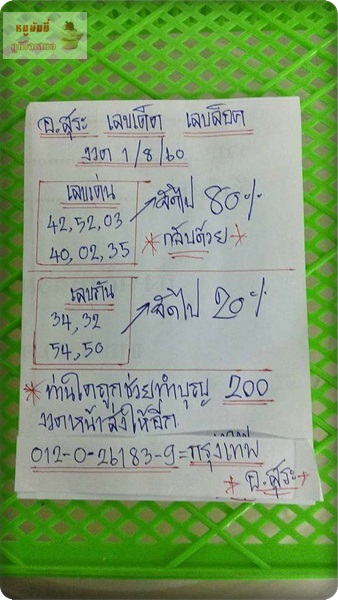 หมูอัมปี้
อ.สุระ เลขเด็ด เลขล๊อค
งวด 1/8/60
เลขเด่น
42,52,03
40,02,35
จัดไป 80%
* กลับด้วย *
เลขกัน
34,32
54,50
จัดไป 20%
* ท่านใดถูกช่วยทำบุญ 200
งวดหน้าส่งให้อีก
012-0-26183-9 = กรุงเทพ
* อ.สุระ *